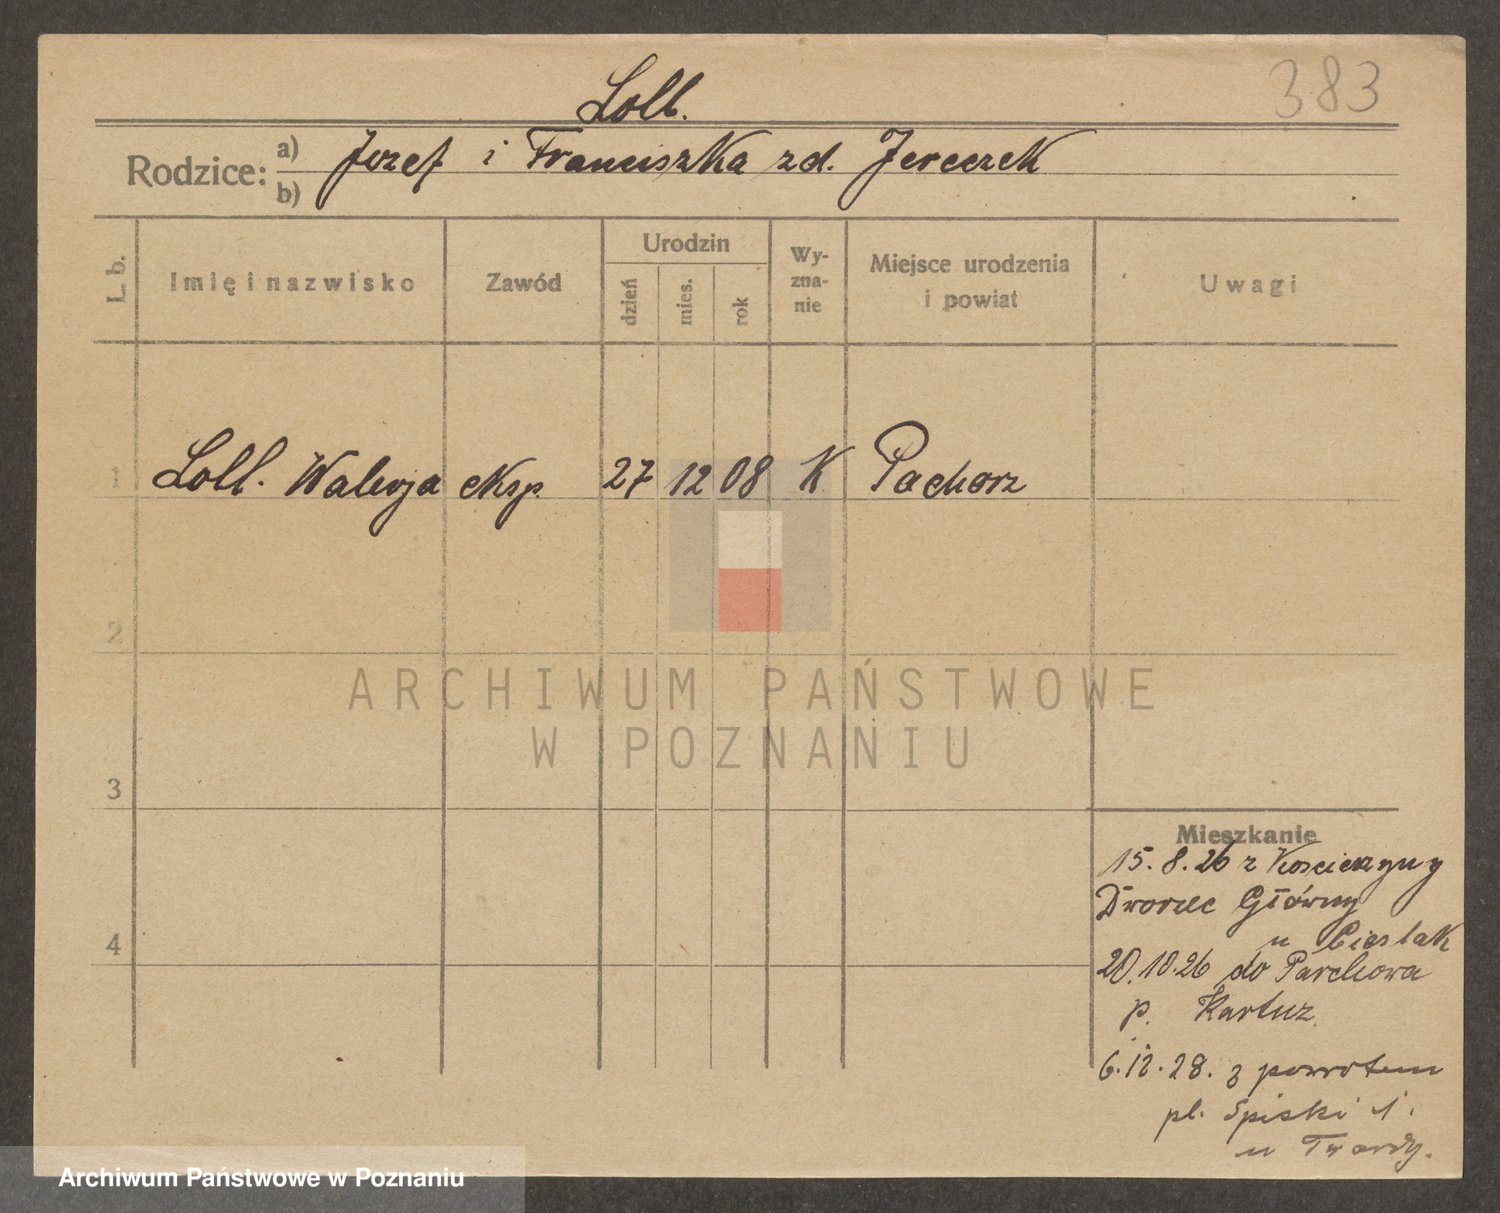 383
Loll.
Rodzice: a) Jozef i Franciszka zd. Jereczek
b)
L. b. Imię i nazwisko Zawód Urodzin dzień mies. rok Wy-zna-nie Miejsce urodzenia i powiat Uwagi
1 Loll. Walerja eksp. 27 12 08 K Pachorz
2
ARCHIWUM PAŃSTWOWE
W POZNANIU
3
Mieszkanie
15.8.26 z Kościerzyny
Dworzec Główny
u Cieslak
4
20.10.26 do Parchowa
p. Kartuz
6.12.28. z powrotem
pl. Spiski 1.
u Twardy.
Archiwum Państwowe w Poznaniu